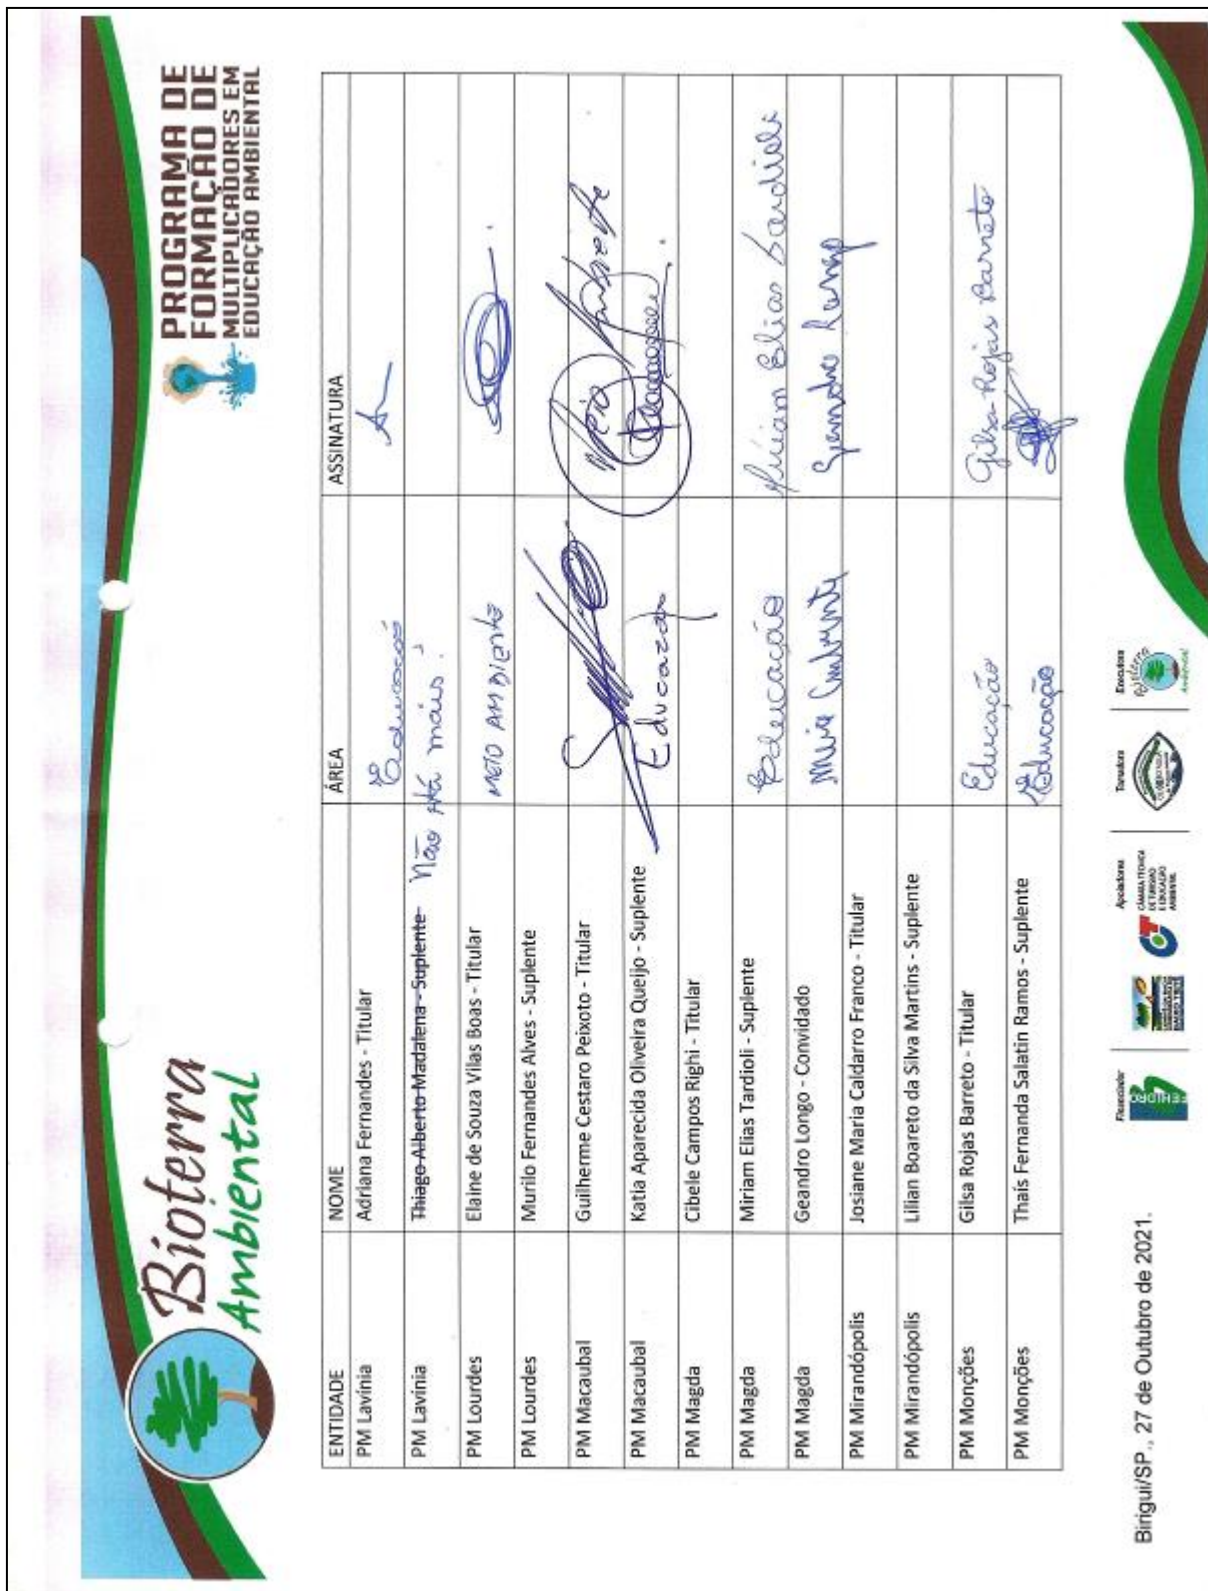 Bioterra
Ambiental
PROGRAMA DE
FORMAÇÃO DE
MULTIPLICADORES EM
EDUCAÇÃO AMBIENTAL
ENTIDADE NOME ÁREA ASSINATURA
PM Lavínia Adriana Fernandes - Titular Educação
PM Lavínia Thiago Alberto Madalena - Suplente Não Há mais.
PM Lourdes Elaine de Souza Vilas Boas - Titular MEIO AMBIENTE
PM Lourdes Murilo Fernandes Alves - Suplente
PM Macaubal Guilherme Cestaro Peixoto - Titular
PM Macaubal Katia Aparecida Oliveira Queijo - Suplente Educação
PM Magda Cibele Campos Righi - Titular
PM Magda Miriam Elias Tardioli - Suplente Educação Miriam Elias Tardioli
PM Magda Geandro Longo - Convidado Meio Ambiente Geandro Longo
PM Mirandópolis Josiane Maria Caldarro Franco - Titular
PM Mirandópolis Lilian Boareto da Silva Martins - Suplente
PM Monções Gilsa Rojas Barreto - Titular Educação Gilsa Rojas Barreto
PM Monções Thais Fernanda Salatin Ramos - Suplente Educação
Birigui/SP., 27 de Outubro de 2021.
Financiador
FEHIDRO
Apoiadores
CÂMARA TÉCNICA
DE TURISMO
E EDUCAÇÃO
AMBIENTAL
Tomadora
Executora
Bioterra
Ambiental